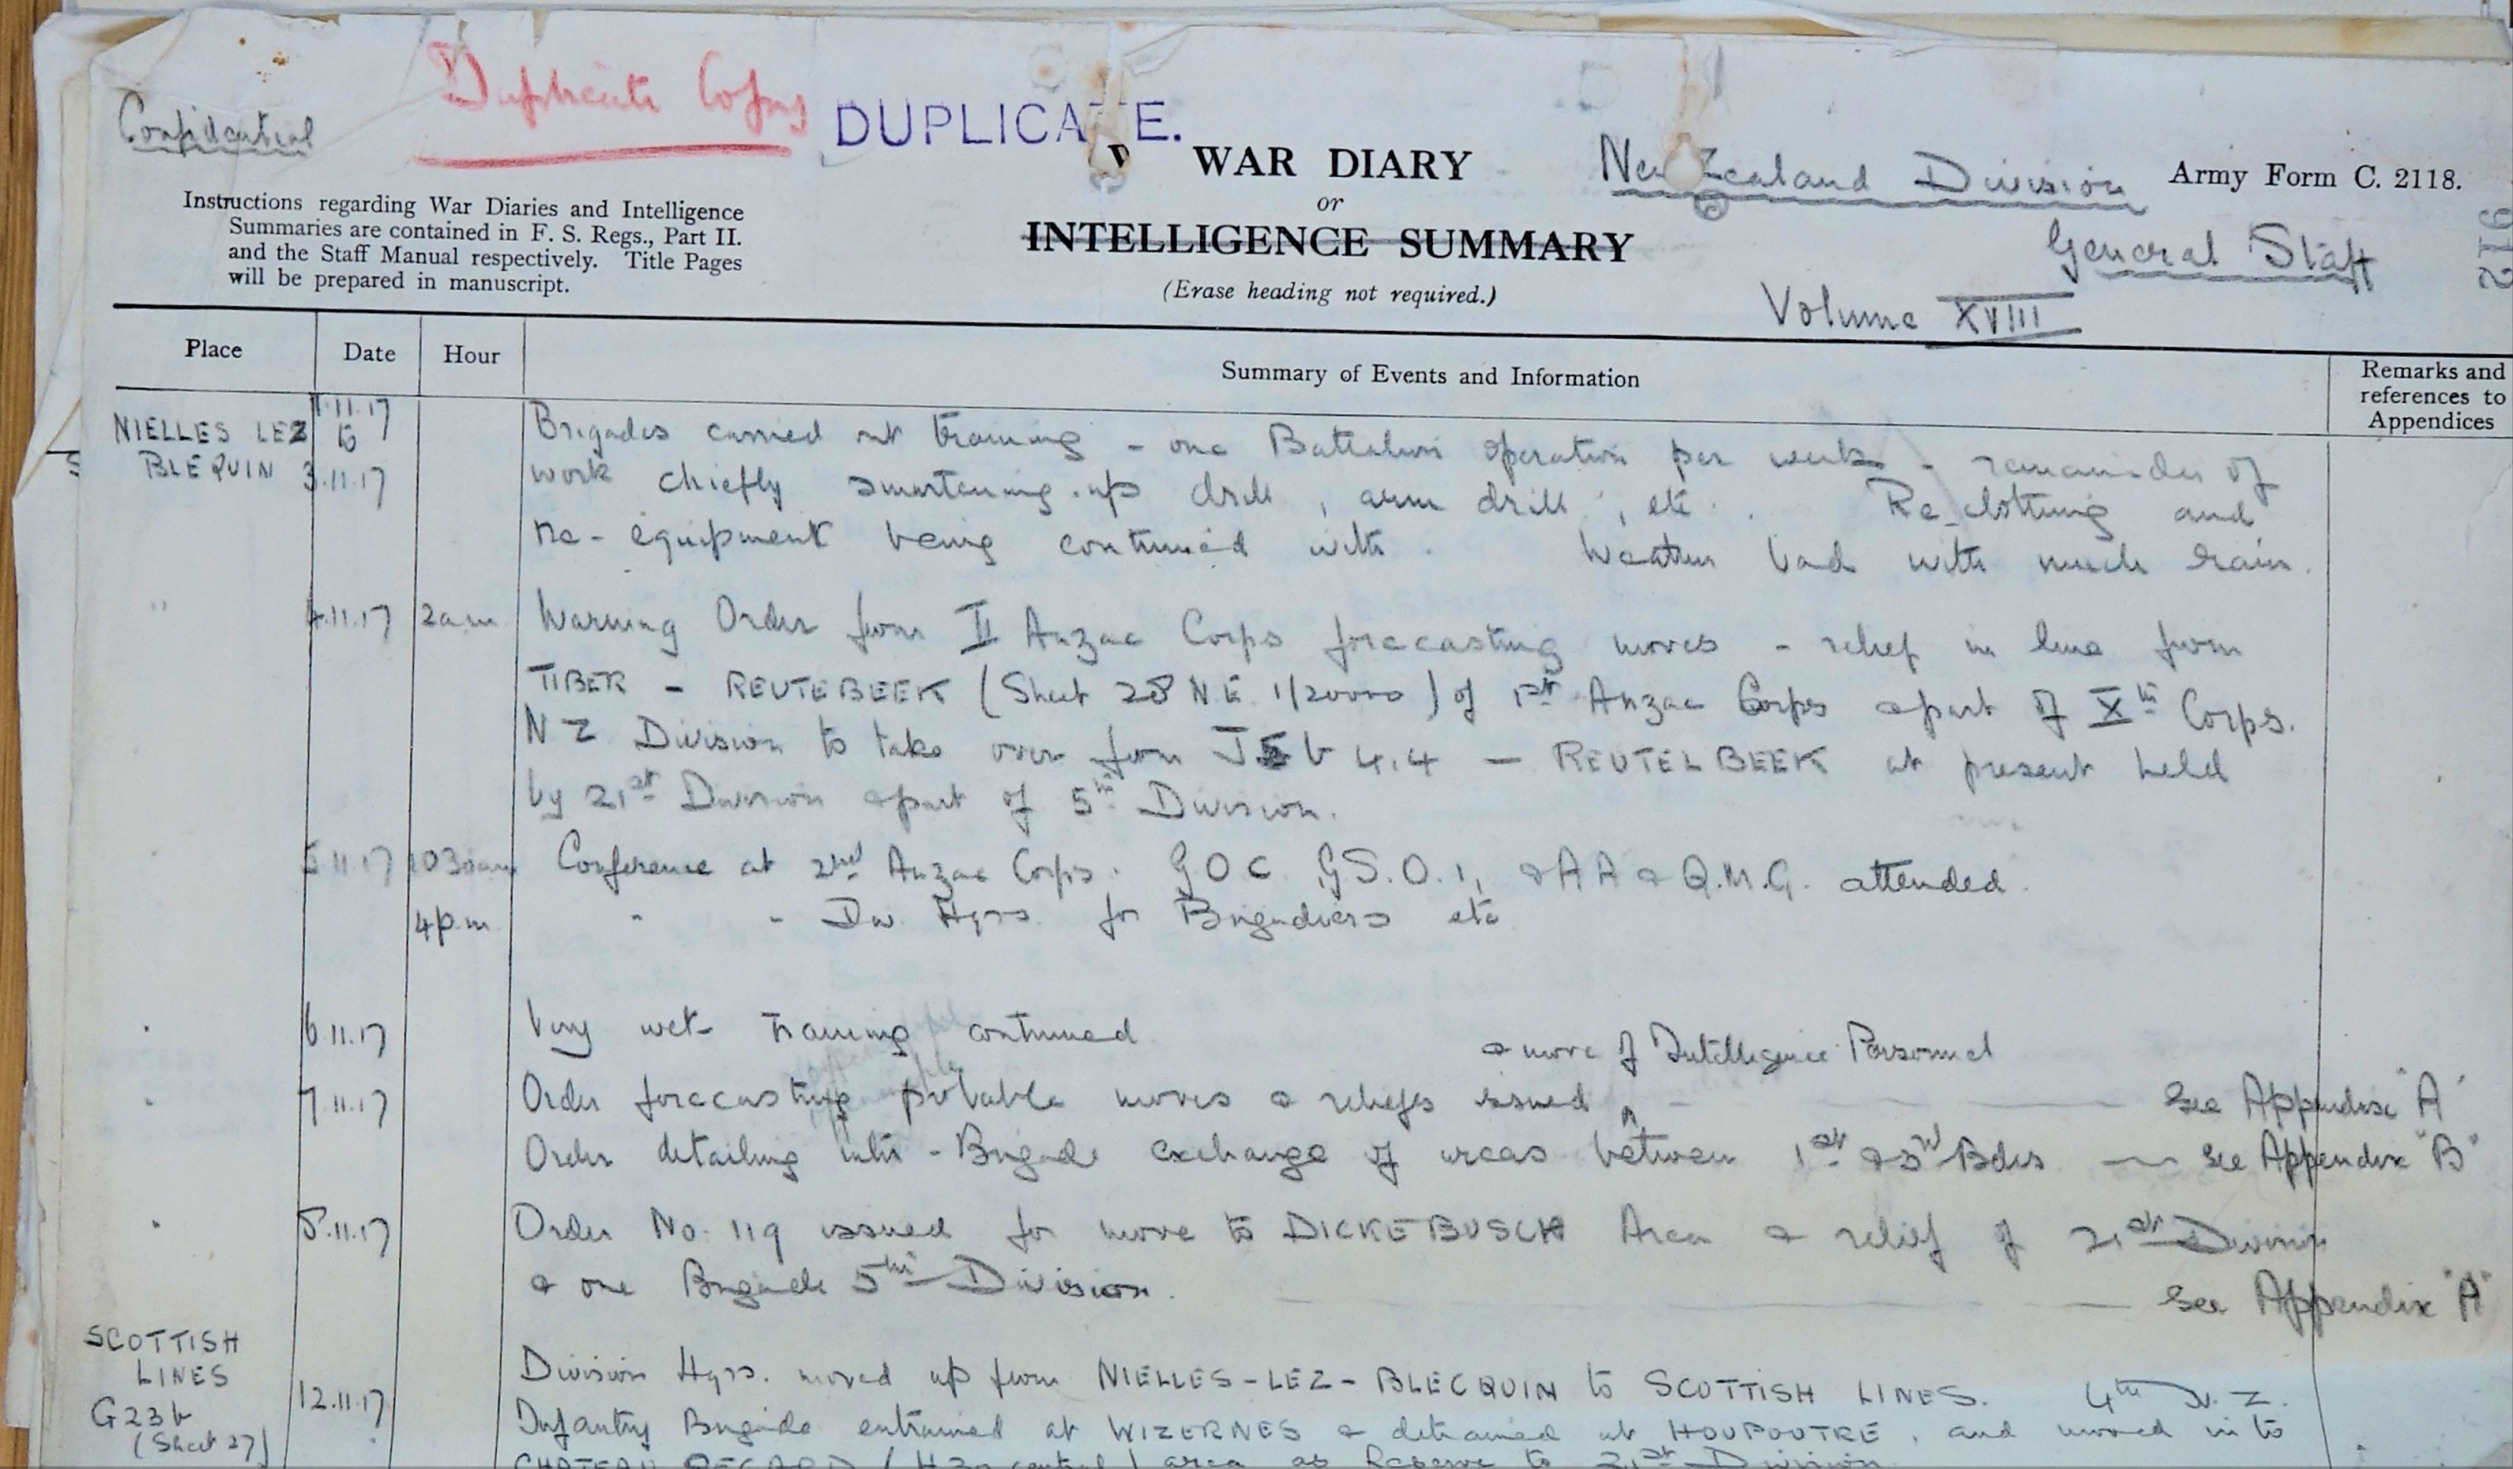 Confidential
Duplicate Copy
DUPLICATE.
WAR DIARY
or
INTELLIGENCE SUMMARY
(Erase heading not required.)
New Zealand Division
Army Form C. 2118.
General Staff
Volume XVIII
216
Instructions regarding War Diaries and Intelligence
Summaries are contained in F. S. Regs., Part II.
and the Staff Manual respectively. Title Pages
will be prepared in manuscript.
Place Date Hour Summary of Events and Information Remarks and references to Appendices
NIELLES LEZ 1.11.17 Brigades carried out training - one Battalion operation per week - remainder of
BLEQUIN to 3.11.17 work chiefly smartening-up drill, arm drill, etc. Re-clothing and
re-equipment being continued with. Weather bad with much rain.
" 4.11.17 2am Warning Order from II Anzac Corps forecasting moves - relief in line from
TIBER - REUTEBEEK (Sheet 28 N.E. 1/20000) of 1st Anzac Corps & part of Xth Corps.
NZ Division to take over from J5 b 4.4 — REUTELBEEK at present held
by 21st Division & part of 5th Division.
5.11.17 1030am Conference at 2nd Anzac Corps. GOC GS.O.1, & AA & Q.M.G. attended.
4p.m " " Div. Hqrs. for Brigadiers etc
6.11.17 Very wet - Training continued
& move of Intelligence Personnel
7.11.17 Order forecasting probable moves & reliefs issued ^ — See Appendix "A"
Order detailing inter-Brigade exchange of areas between 1st & 3rd Bdes — See Appendix "B"
8.11.17 Order No. 119 issued for move to DICKEBUSCH Area & relief of 21st Division
& one Brigade 5th Division. — See Appendix "A"
SCOTTISH
LINES 12.11.17 Division Hqrs. moved up from NIELLES-LEZ-BLECQUIN to SCOTTISH LINES. 4th N.Z.
G23b Infantry Brigade entrained at WIZERNES & detrained at HOUPOUTRE, and moved in to
(Sheet 27) CHATEAU SEGARD (H30 central) area as Reserve to 21st Division